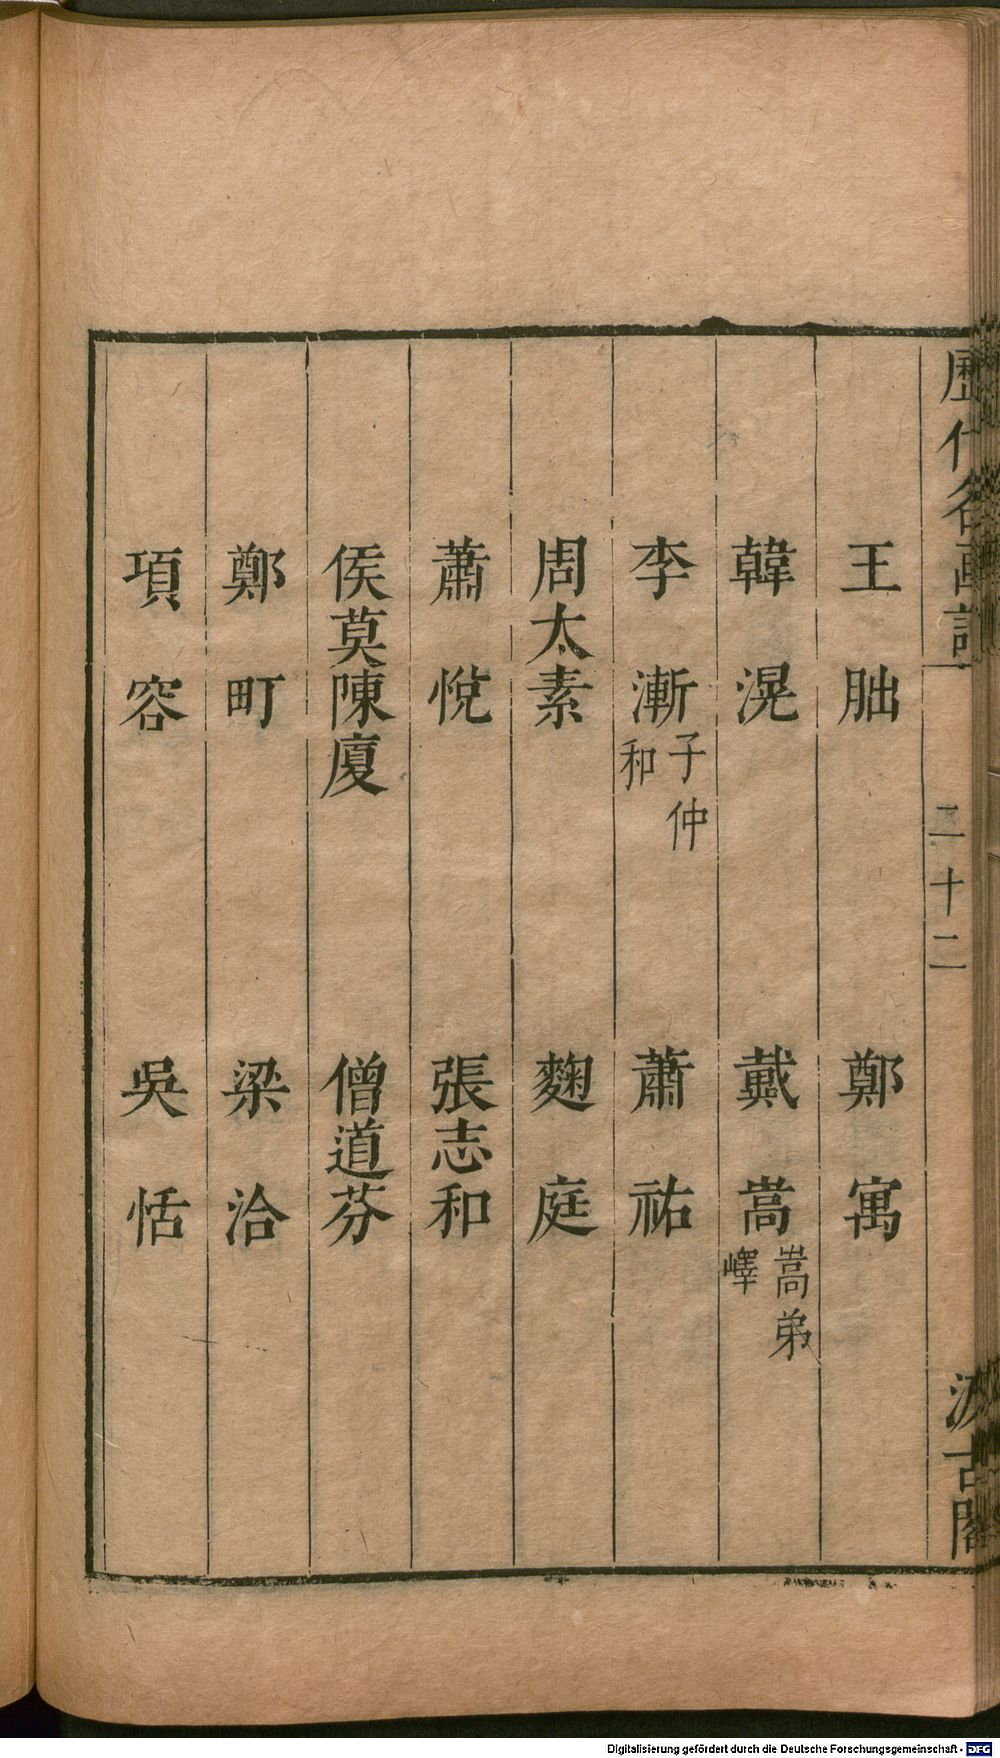 歷代名画記
二十二
汲古閣
王朏 鄭寓
韓滉 戴嵩 嵩弟嶧
李漸 子仲和 蕭祐
周太素 麹庭
蕭悅 張志和
侯莫陳廈 僧道芬
鄭町 梁洽
項容 吳恬
Digitalisierung gefördert durch die Deutsche Forschungsgemeinschaft - DFG